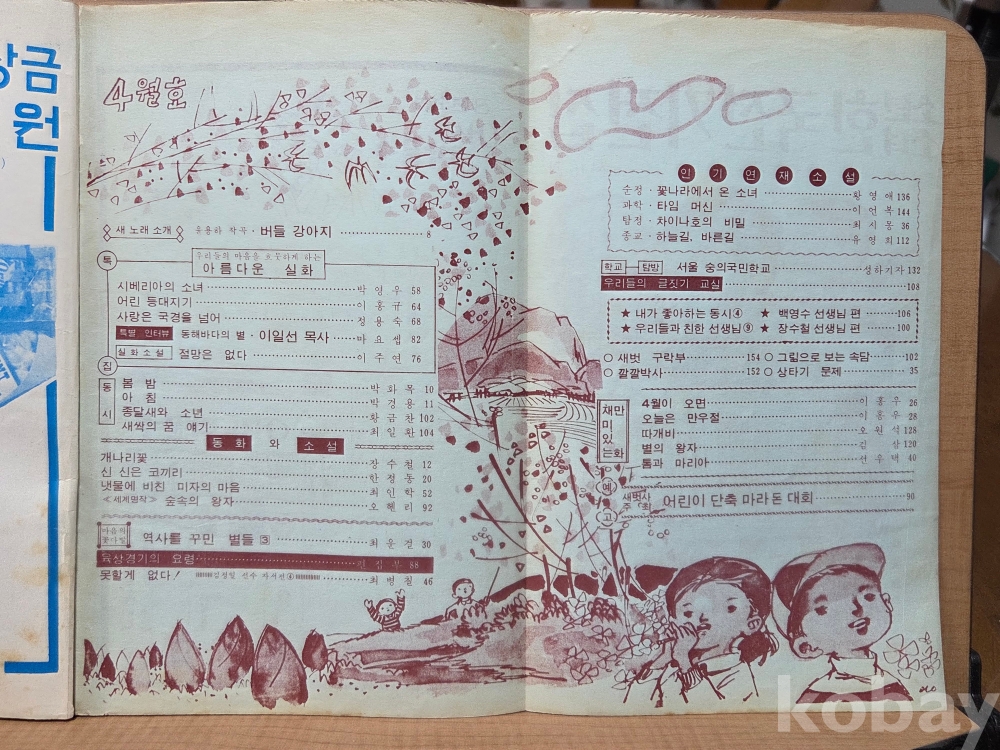 상금
원
4월호
새 노래 소개 유용하 작곡·버들 강아지 8
특집
우리들의 마음을 흐뭇하게 하는
아름다운 실화
시베리아의 소녀 박영우 58
어린 등대지기 이흥규 64
사랑은 국경을 넘어 정용숙 68
특별 인터뷰 동해바다의 별·이일선 목사 마요셉 82
실화소설 절망은 없다 이주연 76
동시
봄 밤 박화목 10
아 침 박경용 11
종달새와 소년 황금찬 102
새싹의 꿈 얘기 최일환 104
동화 와 소설
개나리꽃 장수철 12
신 신은 코끼리 한정동 20
냇물에 비친 미자의 마음 최인학 52
≪세계명작≫ 숲속의 왕자 오헨리 92
마음의
꽃다발
역사를 꾸민 별들 ③ 최운걸 30
육상경기의 요령 편집부 88
못할게 없다! 김정일 선수 자서전④ 최병철 46
인기연재소설
순정·꽃나라에서 온 소녀 황영애 136
과학·타임 머신 이언복 144
탐정·차이나호의 비밀 최시몽 36
종교·하늘길, 바른길 유영희 112
학교 탐방 서울 숭의국민학교 성하기자 132
우리들의 글짓기 교실 108
★ 내가 좋아하는 동시④ ★ 백영수 선생님 편 106
★ 우리들과 친한 선생님⑨ ★ 장수철 선생님 편 100
○ 새벗 구락부 154 ○ 그림으로 보는 속담 102
○ 깔깔박사 152 ○ 상타기 문제 35
재미있는 만화
4월이 오면 이홍우 26
오늘은 만우절 이홍우 28
따개비 오원석 128
별의 왕자 김삼 120
톰과 마리아 선우덕 40
예고
새벗사
주최
어린이 단축 마라톤 대회 90
kobay